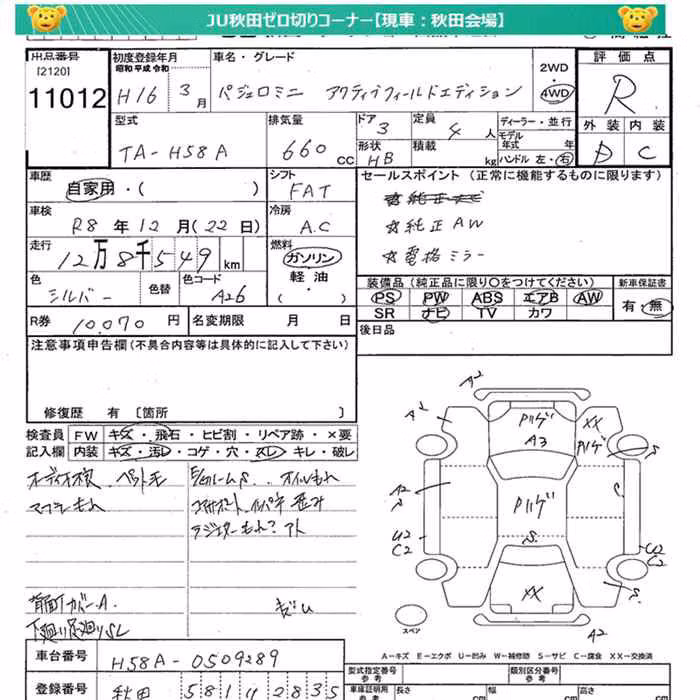 JU秋田ゼロ切りコーナー【現車：秋田会場】
出品番号
[2120]
11012
初度登録年月
昭和 平成 令和
H16 3月
車名・グレード
パジェロミニ アクティブフィールドエディション
2WD
4WD
評価点
R
外装 内装
D C
型式
TA-H58A
排気量
660 CC
ドア
3
形状
HB
定員
4人
積載
kg
ディーラー・並行
モデル年式 年
ハンドル 左・右
車歴
自家用・( )
シフト
FAT
セールスポイント (正常に機能するものに限ります)
☆純正AW
☆電格ミラー
車検
R8年12月(22日)
冷房
A.C
走行
12万8千549km
燃料
ガソリン
軽・油
( )
色
シルバー
色替
色コード
A26
装備品 (純正品に限り○をつけてください)
PS PW ABS エアB AW
SR ナビ TV カワ
新車保証書
有・無
R券 10,070円
名変期限 月 日
後日品
注意事項申告欄 (不具合内容等は具体的に記入して下さい)
修復歴 有 〔箇所 〕
検査員
記入欄
FW キズ・飛石・ヒビ割・リペア跡・×要
内装 キズ・汚レ・コゲ・穴・スレ・キレ・破レ
オーディオ欠 ペット毛
マフラーもれ
オイルもれ
ラジエターもれ？アト
背面カバーA
A2
A2
Pハゲ
A3
XX
Pハゲ
A2
S
Pハゲ
C
U2
C2
S
U2
C2
XX
S
A2
スペア
A－キズ E－エクボ U－凹み W－補修跡 S－サビ C－腐食 XX－交換済
車台番号
H58A-0509289
登録番号
秋田 581 4 2835
型式指定番号
参考
類別区分番号
参考
車庫証明用
参考
長さ cm
幅 cm
高さ cm